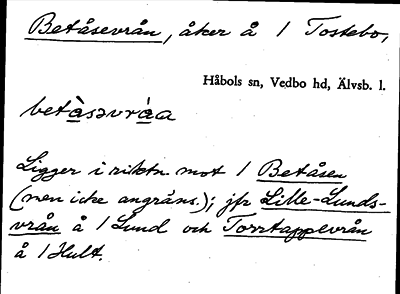 Betåsevrån, åker å 1 Tostebo,
Håbols sn, Vedbo hd, Älvsb. l.
betàsəvráa
Ligger i riktn. mot 1 Betåsen
(men icke angräns.); jfr Lille-Lunds-
vrån å 1 Lund och Torrtappevrån
å 1 Hult.